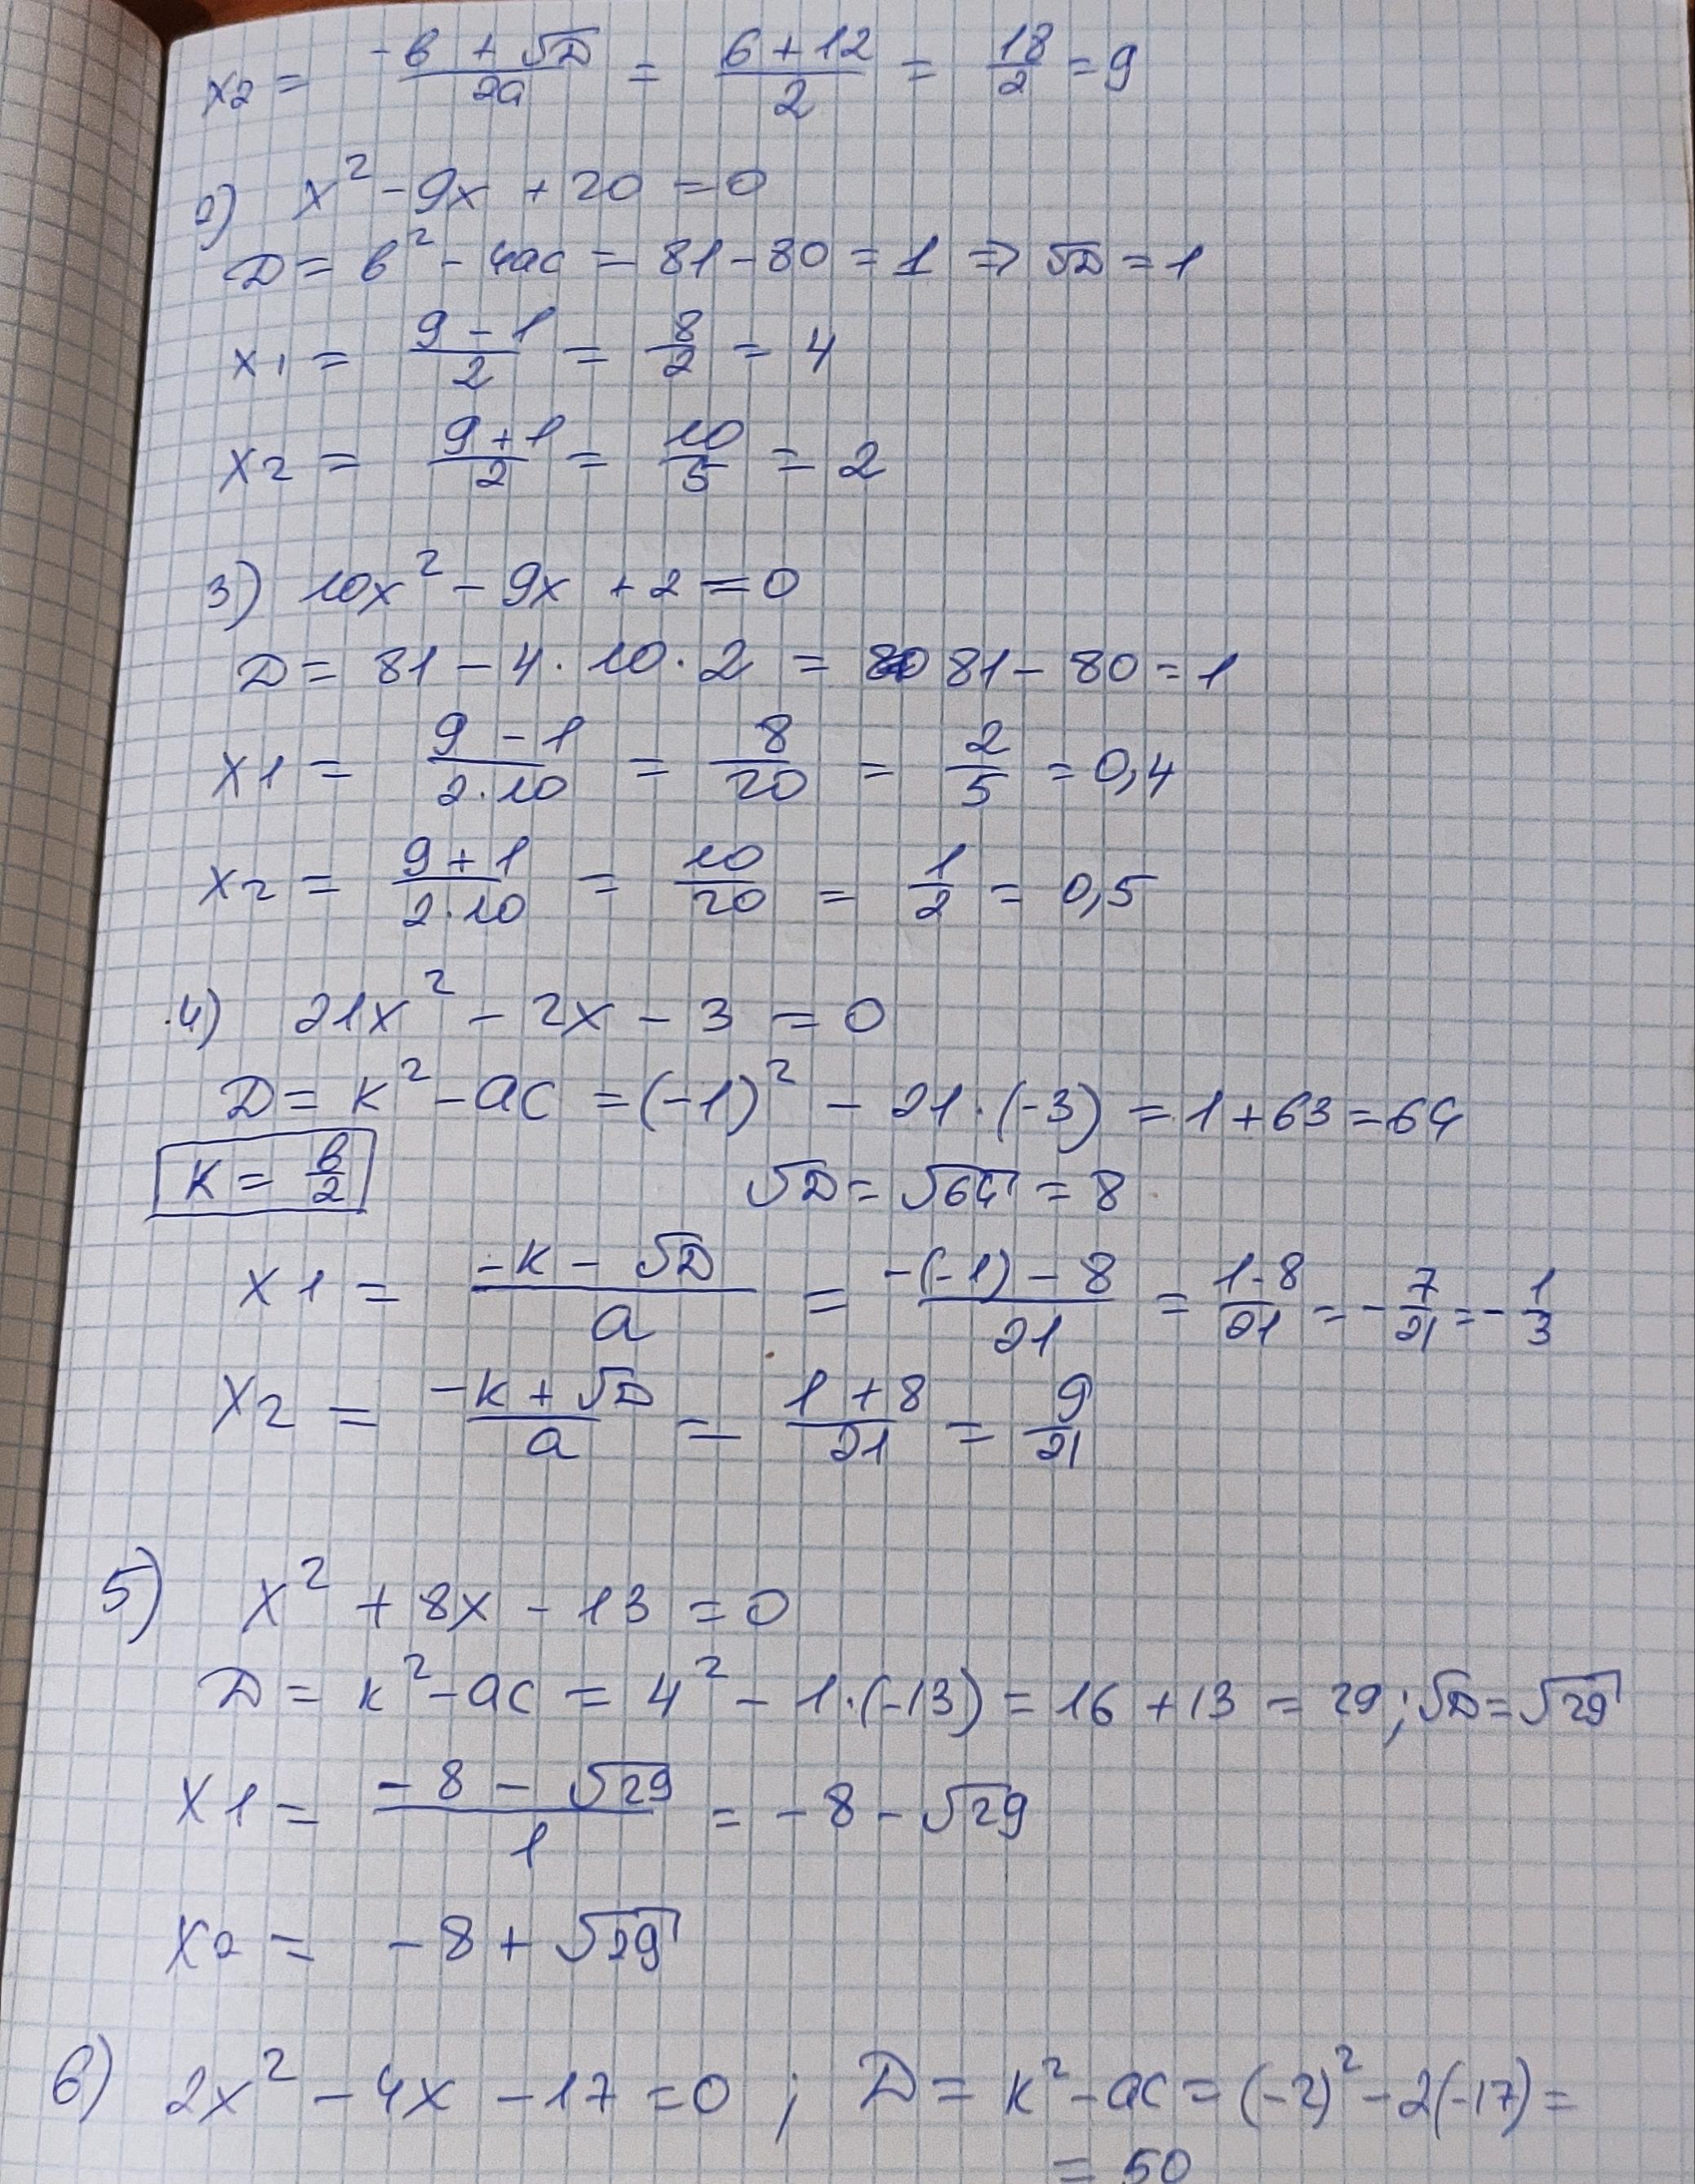 x2 = (-b + √D)/2a = (6 + 12)/2 = 18/2 = 9
2) x² - 9x + 20 = 0
D = b² - 4ac = 81 - 80 = 1 ⇒ √D = 1
x1 = (9 - 1)/2 = 8/2 = 4
x2 = (9 + 1)/2 = 10/5 = 2
3) 10x² - 9x + 2 = 0
D = 81 - 4·10·2 = 81 - 80 = 1
x1 = (9 - 1)/(2·10) = 8/20 = 2/5 = 0,4
x2 = (9 + 1)/(2·10) = 10/20 = 1/2 = 0,5
4) 21x² - 2x - 3 = 0
D = k² - ac = (-1)² - 21·(-3) = 1 + 63 = 64
k = b/2
√D = √64 = 8
x1 = (-k - √D)/a = (-(-1) - 8)/21 = (1 - 8)/21 = -7/21 = -1/3
x2 = (-k + √D)/a = (1 + 8)/21 = 9/21
5) x² + 8x - 13 = 0
D = k² - ac = 4² - 1·(-13) = 16 + 13 = 29; √D = √29
x1 = (-8 - √29)/1 = -8 - √29
x2 = -8 + √29
6) 2x² - 4x - 17 = 0 ; D = k² - ac = (-2)² - 2(-17) =
= 50